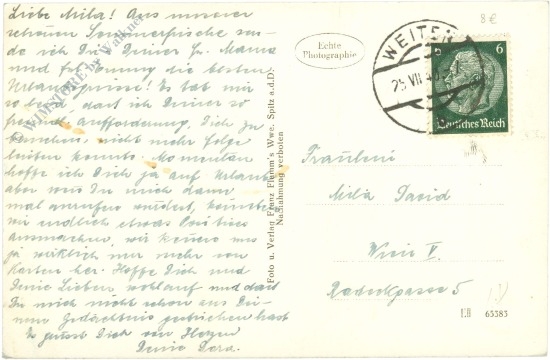 Liebe Mila! Aus unserer
schönen Sommerfrische sen-
de ich Dir Deiner Fr. Mama
und die besten
Urlaubsgrüsse! Es tat mir
so leid, dass ich Deiner so
freundl. Aufforderung, Dich zu
besuchen, nicht mehr Folge
leisten konnte. Momentan
hoffe ich Dich ja auf Urlaub
aber wenn Du mich dann
mal anrufen würdest, könnten
wir endlich etwas Positives
ausmachen, wir kennen uns
ja wirklich nur mehr von
Karten her. Hoffe Dich und
Deine Lieben wohlauf und dass
Du mich nicht schon aus Dei-
nem Gedächtnis gestrichen hast
Es grüsst Dich von Herzen
Deine Dora.
Foto u. Verlag Franz Flamm's Wwe. Spitz a.d.D.
Nachahmung verboten
Echte
Photographie
8 €
WEITEN
25 VII
6 6
Deutsches Reich
Fräulein
Mila David
Wien V.
Radeckgasse 5
LH 65383